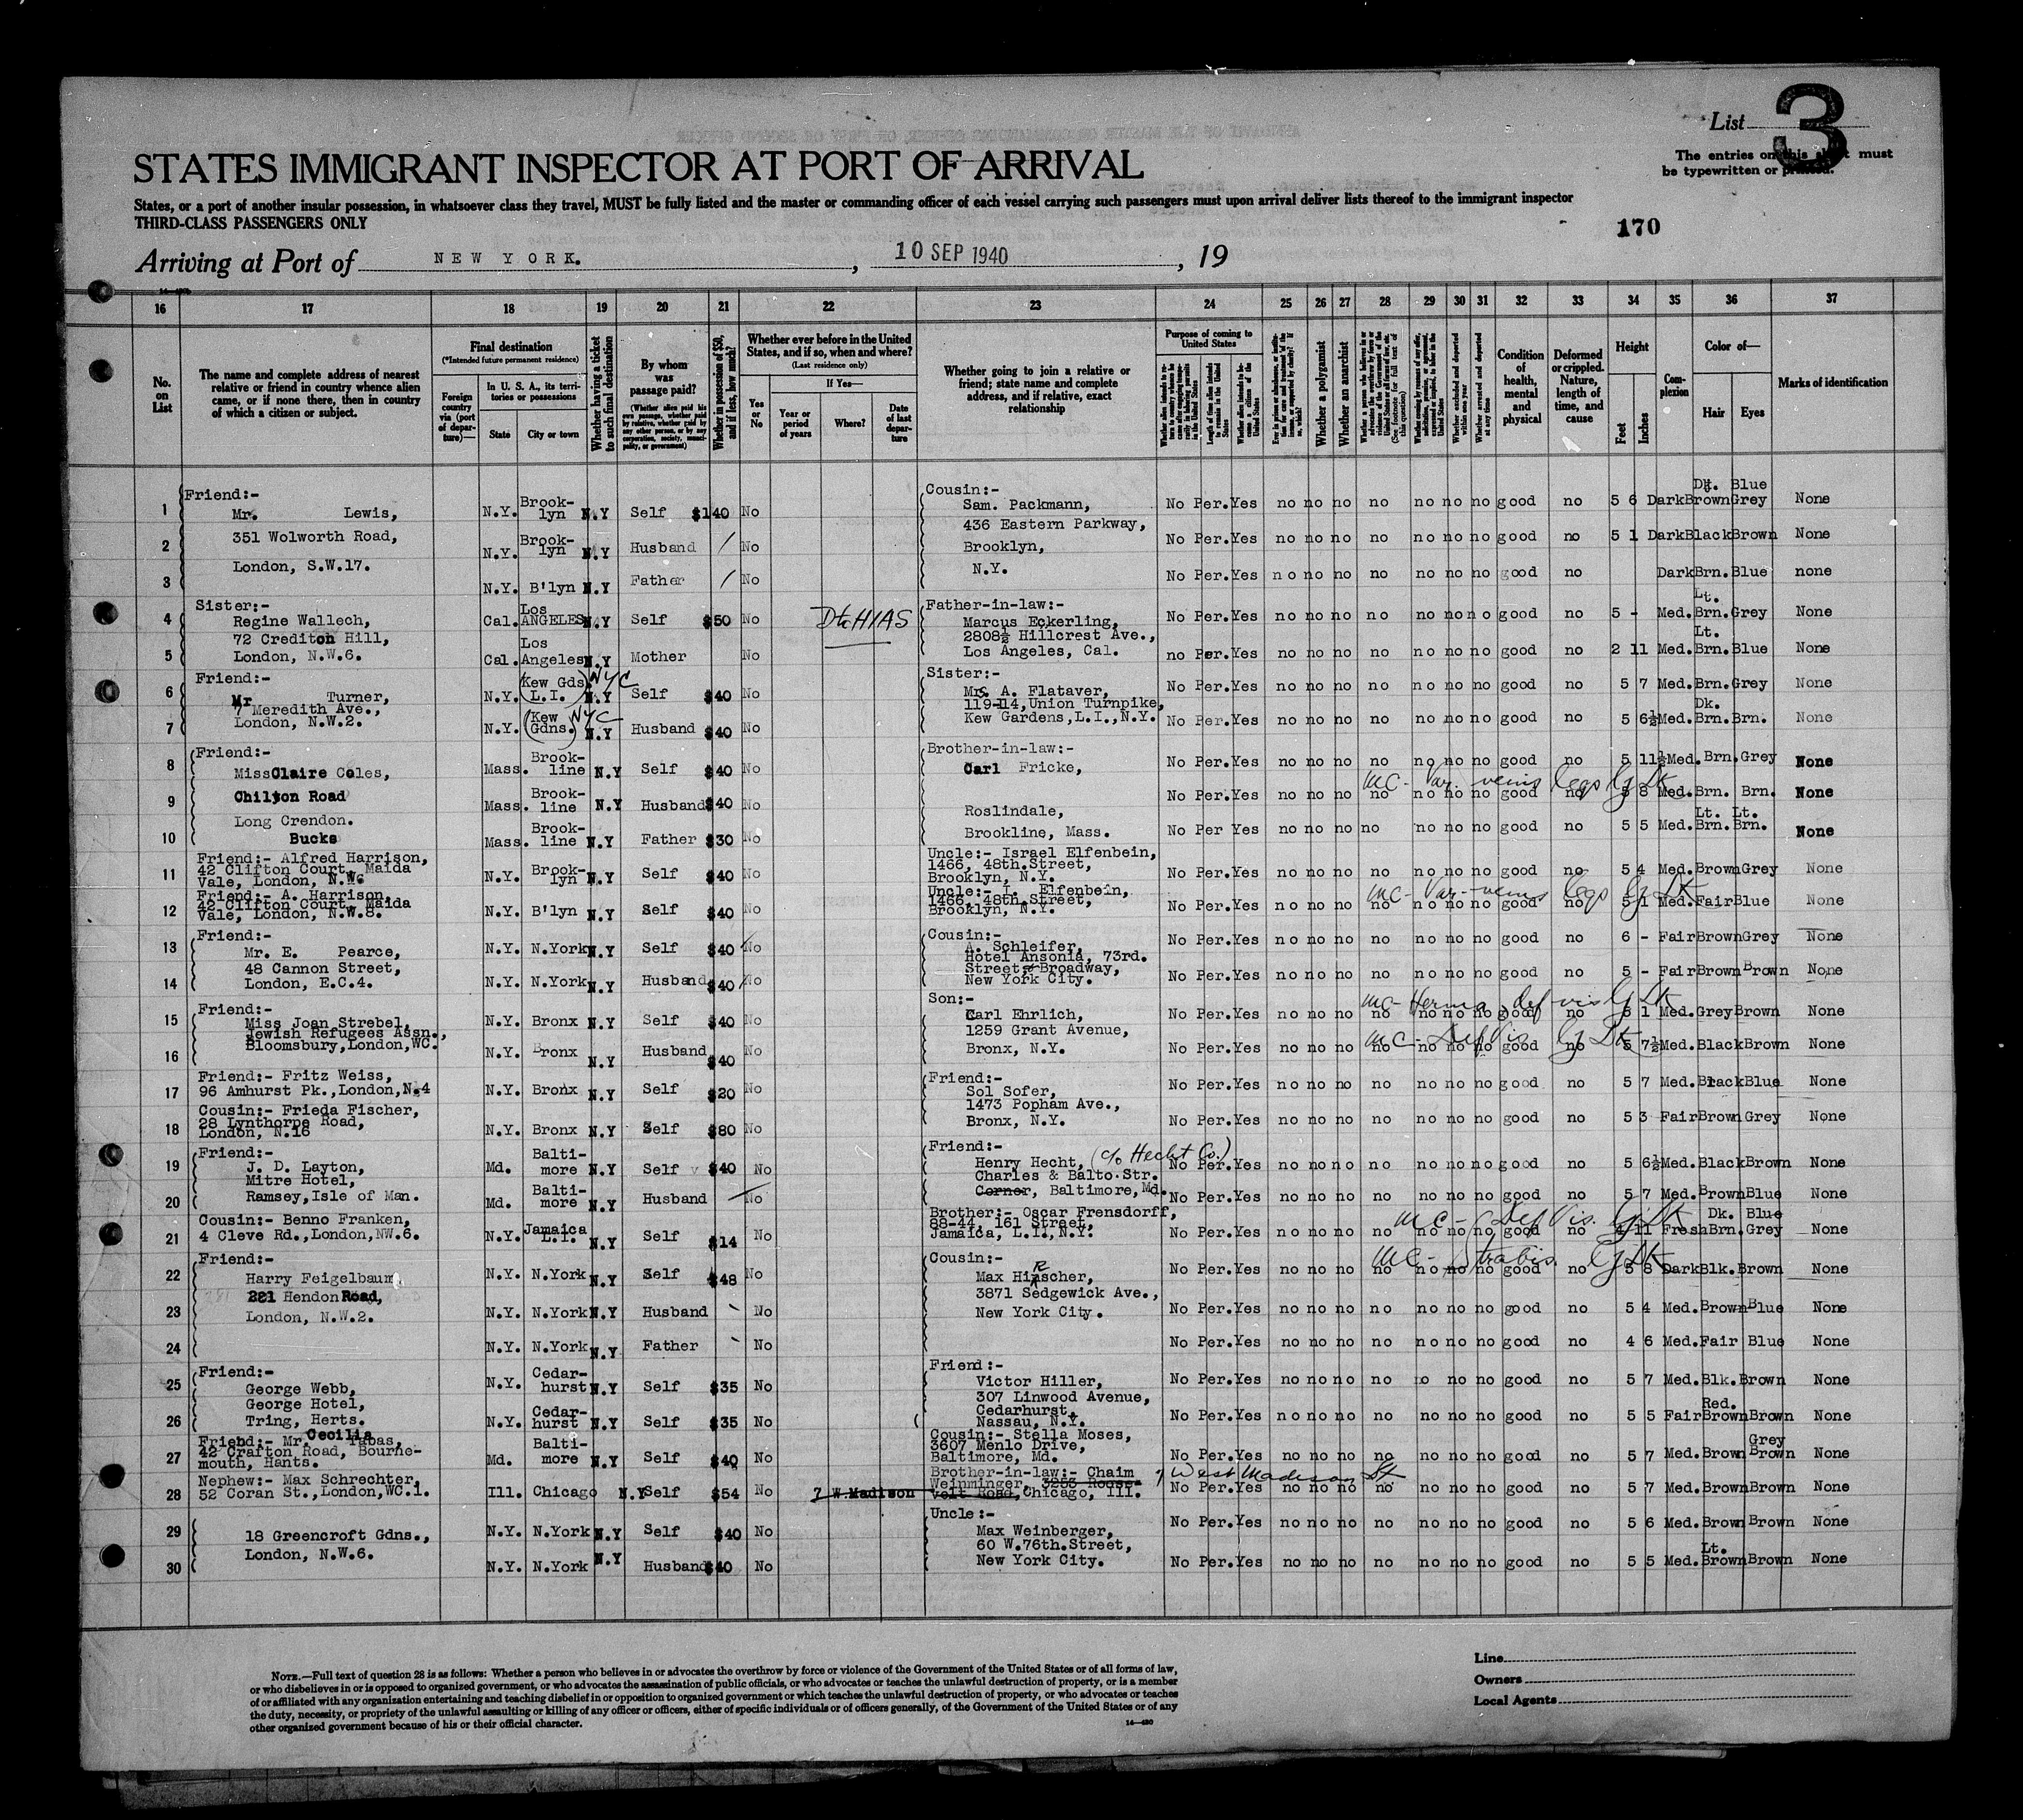 List 3
The entries on this sheet must
be typewritten or printed.
STATES IMMIGRANT INSPECTOR AT PORT OF ARRIVAL
States, or a port of another insular possession, in whatsoever class they travel, MUST be fully listed and the master or commanding officer of each vessel carrying such passengers must upon arrival deliver lists thereof to the immigrant inspector
THIRD-CLASS PASSENGERS ONLY
170
Arriving at Port of NEW YORK. , 10 SEP 1940 , 19
16 17 18 19 20 21 22 23 24 25 26 27 28 29 30 31 32 33 34 35 36 37
No. on List
The name and complete address of nearest relative or friend in country whence alien came, or if none there, then in country of which a citizen or subject.
Final destination
(*Intended future permanent residence)
Foreign country via (port of departure)—
In U. S. A., its territories or possessions
State
City or town
Whether having a ticket to such final destination
By whom was passage paid?
(Whether alien paid his own passage, whether paid by relative, whether paid by any other person, or by any corporation, society, municipality, or government)
Whether in possession of $50, and if less, how much?
Whether ever before in the United States, and if so, when and where?
(Last residence only)
Yes or No
If Yes—
Year or period of years
Where?
Date of last departure
Whether going to join a relative or friend; state name and complete address, and if relative, exact relationship
Purpose of coming to United States
Length of time alien intends to remain in the United States
Whether alien intends to become a citizen of the United States
Whether a polygamist
Whether an anarchist
Condition of health, mental and physical
Deformed or crippled. Nature, length of time, and cause
Height
Feet
Inches
Complexion
Color of—
Hair
Eyes
Marks of identification
1 Friend:- Mr. Lewis, N.Y. Brooklyn N.Y Self $140 No Cousin:- Sam. Packmann, No Per. Yes no no no no no no no good no 5 6 Dark Dk. Brown Blue Grey None
2 351 Wolworth Road, N.Y. Brooklyn N.Y Husband / No 436 Eastern Parkway, Brooklyn, No Per. Yes no no no no no no no good no 5 1 Dark Black Brown None
3 London, S.W.17. N.Y. B'lyn N.Y Father / No N.Y. No Per. Yes no no no no no no no good no Dark Brn. Blue none
4 Sister:- Regine Wallech, 72 Crediton Hill, Cal. Los ANGELES N.Y Self $50 No Dtn HIAS Father-in-law:- Marcus Eckerling, 2808½ Hillcrest Ave., No Per. Yes no no no no no no no good no 5 - Med. Lt. Brn. Grey None
5 London, N.W.6. Cal. Los Angeles N.Y Mother No Los Angeles, Cal. no Per. Yes no no no no no no no good no 2 11 Med. Lt. Brn. Blue None
6 Friend:- Mr Turner, N.Y. (Kew Gds. L.I.) NYC N.Y Self $40 No Sister:- Mrs. A. Flataver, No Per. Yes no no no no no no no good no 5 7 Med. Brn. Grey None
7 7 Meredith Ave., London, N.W.2. N.Y. (Kew Gdns.) NYC N.Y Husband $40 No 119-114, Union Turnpike, Kew Gardens, L.I., N.Y. No Per. Yes no no no no no no no good no 5 6½ Med. Dk. Brn. Brn. None
8 Friend:- Miss Claire Coles, Mass. Brookline N.Y Self $40 No Brother-in-law:- Carl Fricke, No Per. Yes no no no no no no no good no 5 11½ Med. Brn. Grey None
9 Chilton Road Long Crendon. Mass. Brookline N.Y Husband $40 No Roslindale, No Per. Yes no no no no no no no good no 5 8 Med. Brn. Brn. None
MC- Var. veins legs
10 Bucks Mass. Brookline N.Y Father $30 No Brookline, Mass. No Per Yes no no no no no no no good no 5 5 Med. Lt. Brn. Lt. Brn. None
11 Friend:- Alfred Harrison, 42 Clifton Court, Maida Vale, London, N.W. N.Y. Brooklyn N.Y Self $40 No Uncle:- Israel Elfenbein, 1466, 48th. Street, Brooklyn, N.Y. No Per. Yes no no no no no no no good no 5 4 Med. Brown Grey None
12 Friend:- A. Harrison, 42 Clifton Court, Maida Vale, London, N.W.8. N.Y. B'lyn N.Y Self $40 No Uncle:- I. Elfenbein, 1466, 48th. Street, Brooklyn, N.Y. No Per. Yes no no no no no no no good no 5 1 Med. Fair Blue None
MC- Var-veins legs
13 Friend:- Mr. E. Pearce, N.Y. N.York N.Y Self $40 No Cousin:- A. Schleifer, Hotel Ansonia, 73rd. No Per. Yes no no no no no no no good no 6 - Fair Brown Grey None
14 48 Cannon Street, London, E.C.4. N.Y. N.York N.Y Husband $40 No Street & Broadway, New York City. No Per. Yes no no no no no no no good no 5 - Fair Brown Brown None
15 Friend:- Miss Joan Strebel, N.Y. Bronx N.Y Self $40 No Son:- Carl Ehrlich, No Per. Yes no no no no no no no good no 5 1 Med. Grey Brown None
MC- Hernia, def vis
16 Jewish Refugees Assn., Bloomsbury, London, WC. N.Y. Bronx N.Y Husband $40 No 1259 Grant Avenue, Bronx, N.Y. No Per. Yes no no no no no no no good no 5 7½ Med. Black Brown None
MC- Def Vis
17 Friend:- Fritz Weiss, 96 Amhurst Pk., London, N.4 N.Y. Bronx N.Y Self $20 No Friend:- Sol Sofer, No Per. Yes no no no no no no no good no 5 7 Med. Black Blue None
18 Cousin:- Frieda Fischer, 28 Lynthorpe Road, London, N.16 N.Y. Bronx N.Y Self $80 No 1473 Popham Ave., Bronx, N.Y. No Per. Yes no no no no no no no good no 5 3 Fair Brown Grey None
19 Friend:- J. D. Layton, Md. Baltimore N.Y Self $40 No Friend:- Henry Hecht, (c/o Hecht Co.) No Per. Yes no no no no no no no good no 5 6½ Med. Black Brown None
20 Mitre Hotel, Ramsey, Isle of Man. Md. Baltimore N.Y Husband No Charles & Balto. Str. Corner, Baltimore, Md. No Per. Yes no no no no no no no good no 5 7 Med. Brown Blue None
21 Cousin:- Benno Franken, 4 Cleve Rd., London, NW.6. N.Y. Jamaica L.I. N.Y Self $14 No Brother:- Oscar Frensdorff, 88-44, 161 Street, Jamaica, L.I., N.Y. No Per. Yes no no no no no no no good no 4 11 Fresh Dk. Brn. Blue Grey None
MC- Def Vis.
22 Friend:- Harry Feigelbaum N.Y. N.York N.Y Self $48 No Cousin:- Max Hirscher, No Per. Yes no no no no no no no good no 5 8 Dark Blk. Brown None
MC- Strabis.
23 321 Hendon Road, London, N.W.2. N.Y. N.York N.Y Husband No 3871 Sedgewick Ave., New York City. No Per. Yes no no no no no no no good no 5 4 Med. Brown Blue None
24 N.Y. N.York N.Y Father No No Per. Yes no no no no no no no good no 4 6 Med. Fair Blue None
25 Friend:- George Webb, N.Y. Cedarhurst N.Y Self $35 No Friend:- Victor Hiller, No Per. Yes no no no no no no no good no 5 7 Med. Blk. Brown None
26 George Hotel, Tring, Herts. N.Y. Cedarhurst N.Y Self $35 No 307 Linwood Avenue, Cedarhurst, Nassau, N.Y. No Per. Yes no no no no no no no good no 5 5 Fair Red. Brown Brown None
27 Friend:- Mr. Cecilia Tabas, 42 Crafton Road, Bournemouth, Hants. Md. Baltimore N.Y Self $40 No Cousin:- Stella Moses, 3607 Menlo Drive, Baltimore, Md. No Per. Yes no no no no no no no good no 5 7 Med. Brown Grey Brown None
28 Nephew:- Max Schrechter, 52 Coran St., London, WC.1. Ill. Chicago N.Y Self $54 No 7 W Madison Brother-in-law:- Chaim Weinminger, 3253 Rousevelt Road, Chicago, Ill. 7 West Madison St No Per. Yes no no no no no no no good no 5 7 Med. Brown Brown None
29 18 Greencroft Gdns., N.Y. N.York N.Y Self $40 No Uncle:- Max Weinberger, No Per. Yes no no no no no no no good no 5 6 Med. Brown Brown None
30 London, N.W.6. N.Y. N.York N.Y Husband $40 No 60 W. 76th. Street, New York City. No Per. Yes no no no no no no no good no 5 5 Med. Lt. Brown Brown None
NOTE.—Full text of question 28 is as follows: Whether a person who believes in or advocates the overthrow by force or violence of the Government of the United States or of all forms of law,
or who disbelieves in or is opposed to organized government, or who advocates the assassination of public officials, or who advocates or teaches the unlawful destruction of property, or is a member
of or affiliated with any organization entertaining and teaching disbelief in or opposition to organized government or which teaches the unlawful destruction of property, or who advocates or teaches
the duty, necessity, or propriety of the unlawful assaulting or killing of any officer or officers, either of specific individuals or of officers generally, of the Government of the United States or of any
other organized government because of his or their official character.
14—420
Line
Owners
Local Agents